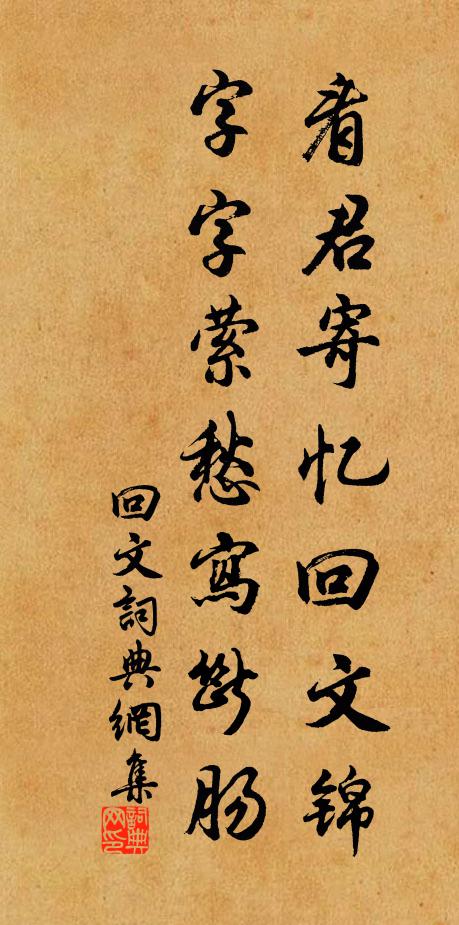 看君寄忆回文锦
字字萦愁寫断肠
回文詞典網集
詞典网印